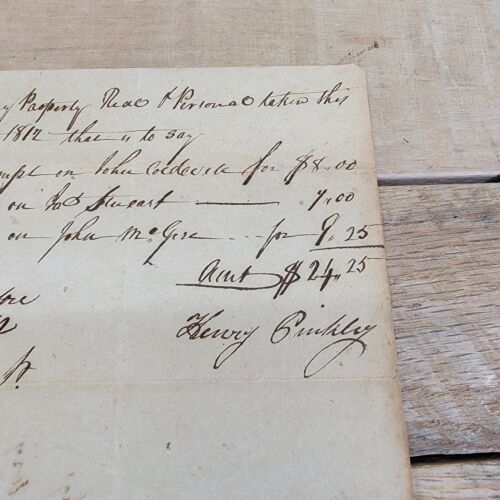 y Property Real & Personal taken this
1812 that is to say
mpt on John for $8.00
on Jas Stuart — 7,00
on John McGire -- for 9,25
Amt $24,25
Henry Pinkley